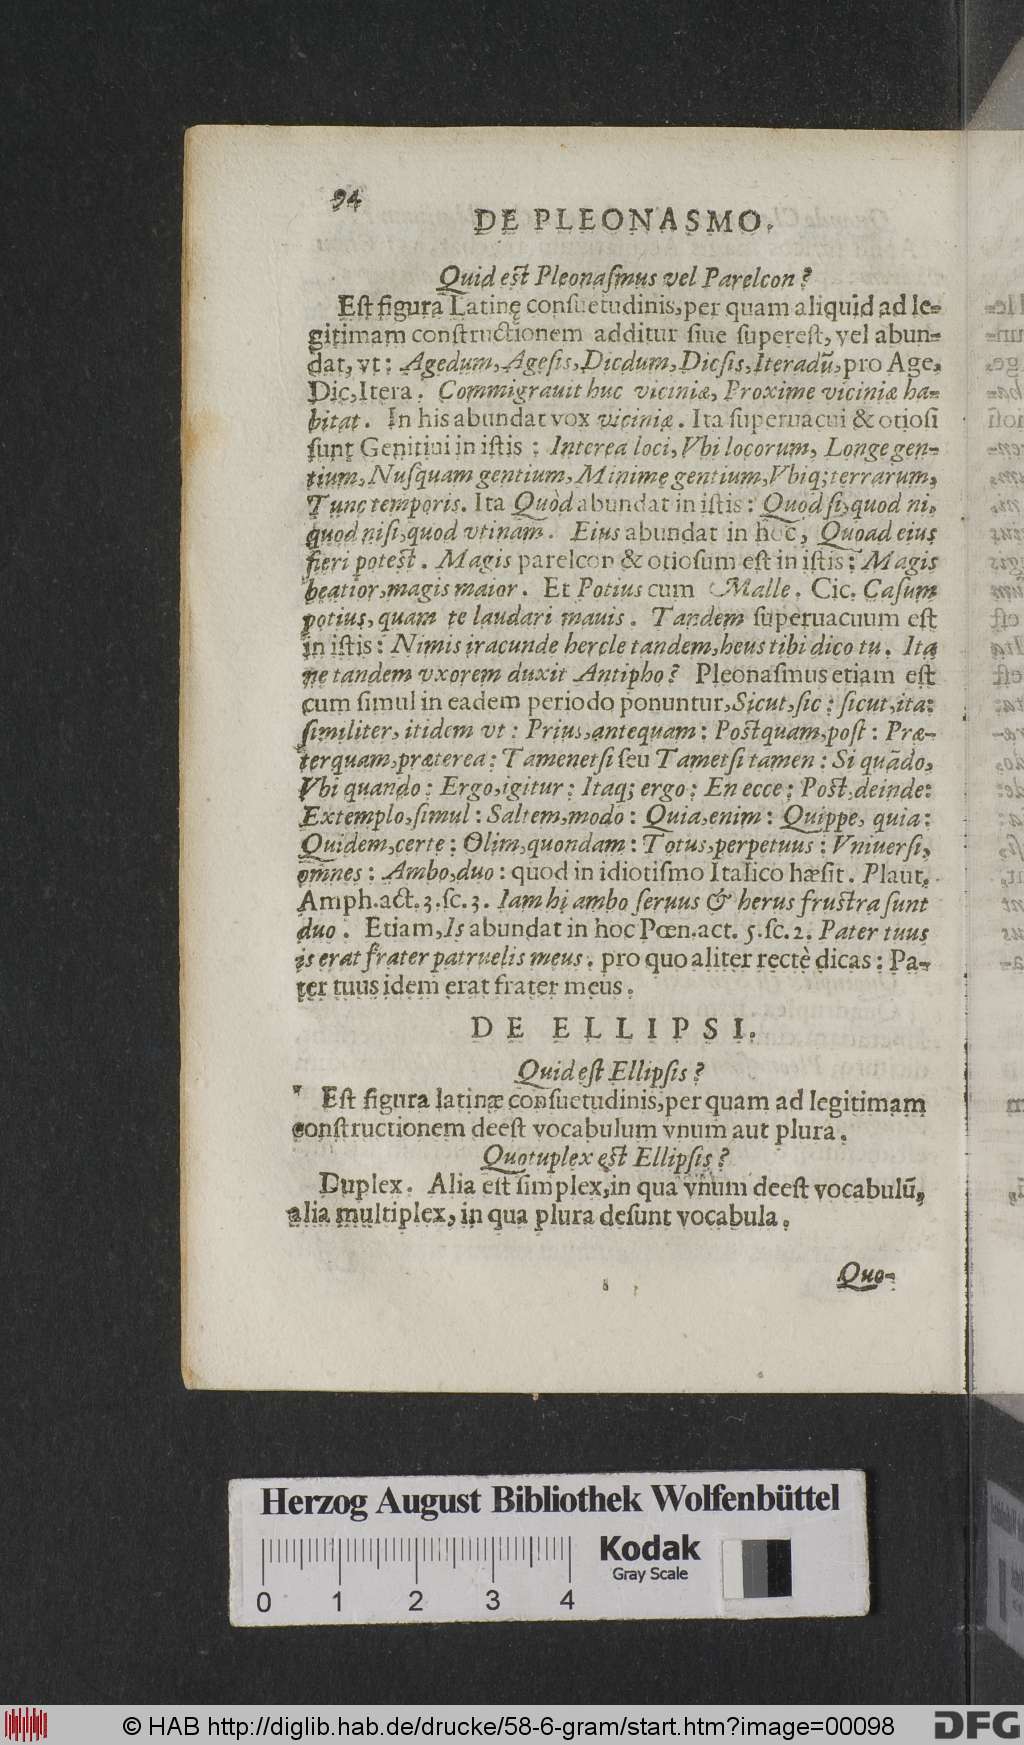 94
DE PLEONASMO.
Quid eſt Pleonaſmus vel Parelcon?
Eſt figura Latinę conſuetudinis, per quam aliquid ad le-
gitimam conſtructionem additur ſiue ſupereſt, vel abun-
dat, vt: Agedum, Ageſis, Dicdum, Dicſis, Iteradū, pro Age,
Dic, Itera. Commigrauit huc viciniæ, Proxime viciniæ ha-
bitat. In his abundat vox viciniæ. Ita ſuperuacui & otioſi
ſunt Genitiui in iſtis: Interea loci, Vbi locorum, Longe gen-
tium, Nuſquam gentium, Minimę gentium, Vbiq; terrarum,
Tunc temporis. Ita Quòd abundat in iſtis: Quod ſi, quod ni,
quod niſi, quod vtinam. Eius abundat in hoc, Quoad eius
fieri poteſt. Magis parelcon & otioſum eſt in iſtis: Magis
beatior, magis maior. Et Potius cum Malle. Cic. Caſum
potius, quam te laudari mauis. Tandem ſuperuacuum eſt
in iſtis: Nimis iracunde hercle tandem, heus tibi dico tu. Ita
ne tandem vxorem duxit Antipho? Pleonaſmus etiam eſt
cum ſimul in eadem periodo ponuntur, Sicut, ſic: ſicut, ita:
ſimiliter, itidem vt: Prius, antequam: Poſtquam, poſt: Præ-
terquam, præterea: Tamenetſi ſeu Tametſi tamen: Si quādo,
Vbi quando: Ergo, igitur: Itaq; ergo: En ecce: Poſt, deinde:
Extemplo, ſimul: Saltem, modo: Quia, enim: Quippe, quia:
Quidem, certe: Olim, quondam: Totus, perpetuus: Vniuerſi,
omnes: Ambo, duo: quod in idiotiſmo Italico hæſit. Plaut.
Amph. act. 3. ſc. 3. Iam hi ambo ſeruus & herus fruſtra ſunt
duo. Etiam, Is abundat in hoc Pœn. act. 5. ſc. 2. Pater tuus
is erat frater patruelis meus. pro quo aliter rectè dicas: Pa-
ter tuus idem erat frater meus.
DE ELLIPSI.
Quid eſt Ellipſis?
Eſt figura latinæ conſuetudinis, per quam ad legitimam
conſtructionem deeſt vocabulum vnum aut plura.
Quotuplex eſt Ellipſis?
Duplex. Alia eſt ſimplex, in qua vnum deeſt vocabulū,
alia multiplex, in qua plura deſunt vocabula.
Quo-
Herzog August Bibliothek Wolfenbüttel
Kodak
Gray Scale
0 1 2 3 4
© HAB http://diglib.hab.de/drucke/58-6-gram/start.htm?image=00098
DFG